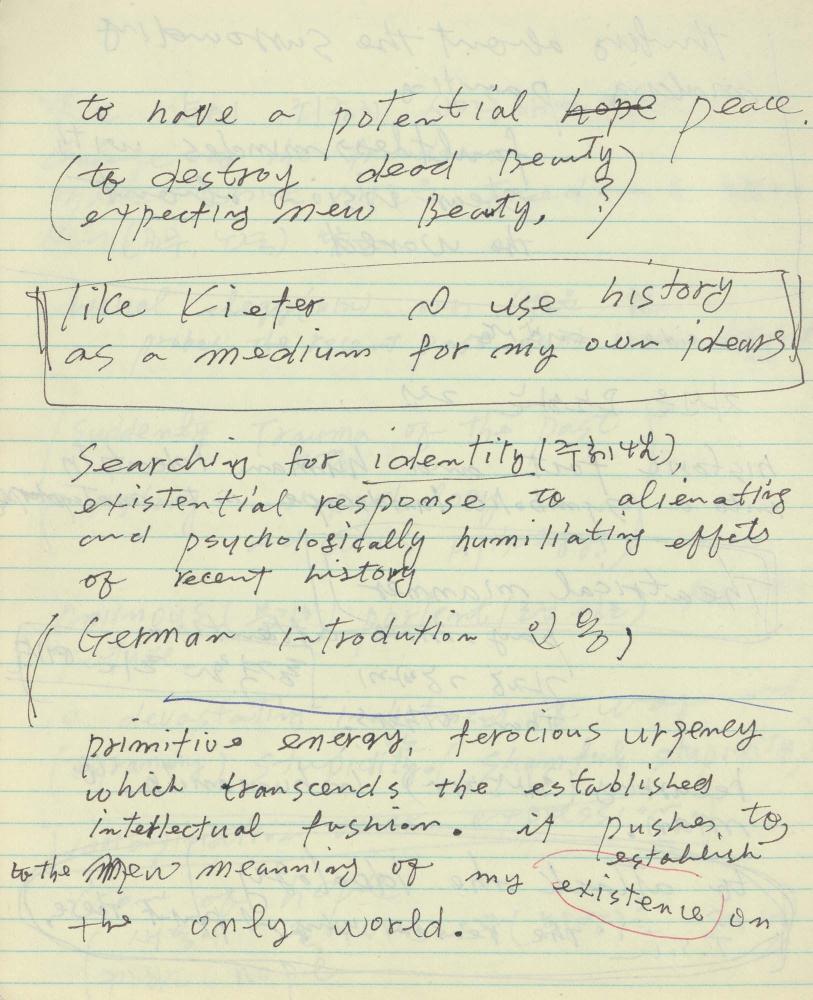 to have a potential hope peace.
(to destroy dead Beauty
expecting new Beauty, ?)
like Kiefer I use history
as a medium for my own idears
Searching for identity (주희),
existential response to alienating
and psychologically humiliating effets
of recent history
German introdution 인용,
primitive energy, ferocious urgency
which transcends the established
intellectual fashion. it pushes to
establish
to the new meanning of my existence on
the only world.